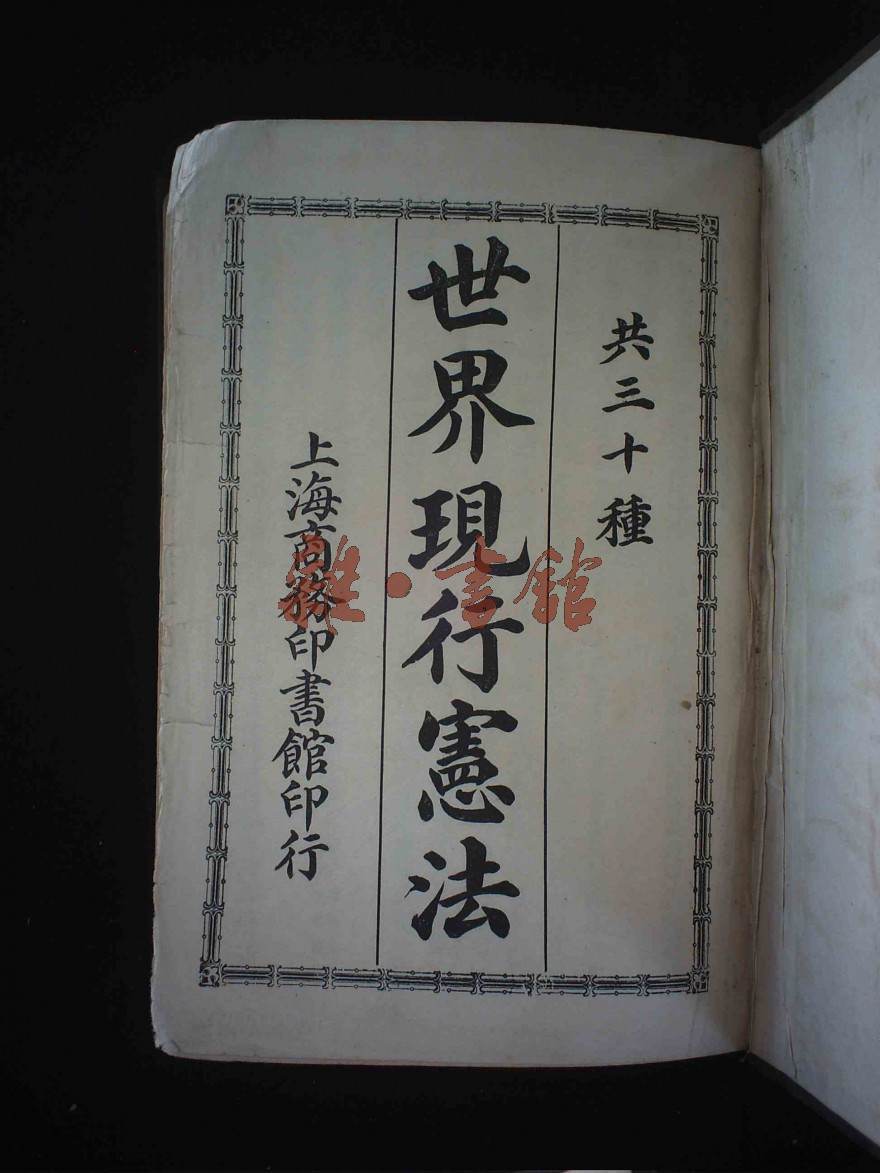 共三十種
世界現行憲法
上海商務印書館印行
雜·書館